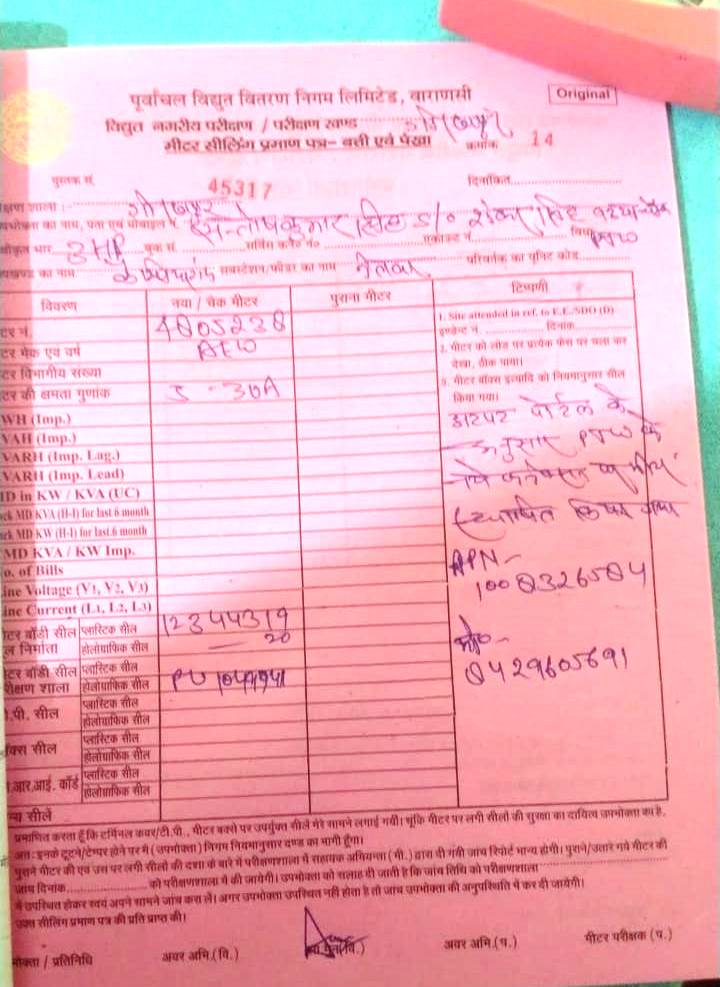 पूर्वांचल विद्युत वितरण निगम लिमिटेड, वाराणसी
Original
विद्युत नगरीय परीक्षण / परीक्षण खण्ड
मीटर सीलिंग प्रमाण पत्र– बत्ती एवं पंखा
क्रमांक 14
पुस्तक सं.
45317
दिनांकित
क्षण शाला :-
भोक्ता का नाम, पता एवं मोबाइल नं. सन्तोष कुमार सिंह S/O
3HP बुक सं. सर्विस कनै० No एकाउन्ट नं. विधा PTW
खण्ड का नाम सबस्टेशन/फीडर का नाम परिवर्तक का यूनिट कोड
विवरण नया / चेक मीटर पुराना मीटर टिप्पणी
टर नं. 4805238
टर मेक एवं वर्ष
टर विभागीय संख्या
टर की क्षमता गुणांक 5-30A
WH (Imp.)
VAH (Imp.)
VARH (Imp. Lag.)
VARH (Imp. Lead)
D in KW / KVA (UC)
ck MD KVA (H-I) for last 6 month
ck MD KW (H-I) for last 6 month
MD KVA / KW Imp.
o. of Bills
ine Voltage (V1, V2, V3)
ine Current (L1, L2, L3)
टर बॉडी सील प्लास्टिक सील 12344319
ल निर्माता होलोग्राफिक सील — 20
टर बॉडी सील प्लास्टिक सील
रीक्षण शाला होलोग्राफिक सील
.पी. सील प्लास्टिक सील
होलोग्राफिक सील
क्स सील प्लास्टिक सील
होलोग्राफिक सील
.आर.आई. कॉर्ड प्लास्टिक सील
होलोग्राफिक सील
न्य सीलें
1. Site attended in ref. to E.E./SDO (D)
इण्डेन्ट नं. दिनांक
2. मीटर को लोड पर प्रत्येक फेस पर चला कर
देखा, ठीक पाया।
3. मीटर बॉक्स इत्यादि को नियमानुसार सील
किया गया।
झटपट पोर्टल के
अनुसार PTW के
नये कनेक्शन पर मीटर
स्थापित किया गया
APN-
1008326584
मो०-
8429605691
प्रमाणित करता हूँ कि टर्मिनल कवर/टी.पी., मीटर बक्से पर उपर्युक्त सीलें मेरे सामने लगाई गयी। चूंकि मीटर पर लगी सीलों की सुरक्षा का दायित्व उपभोक्ता का है.
अतः इनके टूटने/टेम्पर होने पर मैं (उपभोक्ता) निगम नियमानुसार दण्ड का भागी हूँगा।
पुराने मीटर की एवं उस पर लगी सीलों की दशा के बारे में परीक्षणशाला में सहायक अभियन्ता (मी.) द्वारा दी गयी जांच रिपोर्ट मान्य होगी। पुराने/उतारे गये मीटर की
जांच दिनांक को परीक्षणशाला में की जायेगी। उपभोक्ता को सलाह दी जाती है कि जांच तिथि को परीक्षणशाला
में उपस्थित होकर स्वयं अपने सामने जांच करा लें। अगर उपभोक्ता उपस्थित नहीं होता है तो जांच उपभोक्ता की अनुपस्थिति में कर दी जायेगी।
उक्त सीलिंग प्रमाण पत्र की प्रति प्राप्त की।
भोक्ता / प्रतिनिधि अवर अभि.(वि.) अवर अभि.(प.) मीटर परीक्षक (प.)